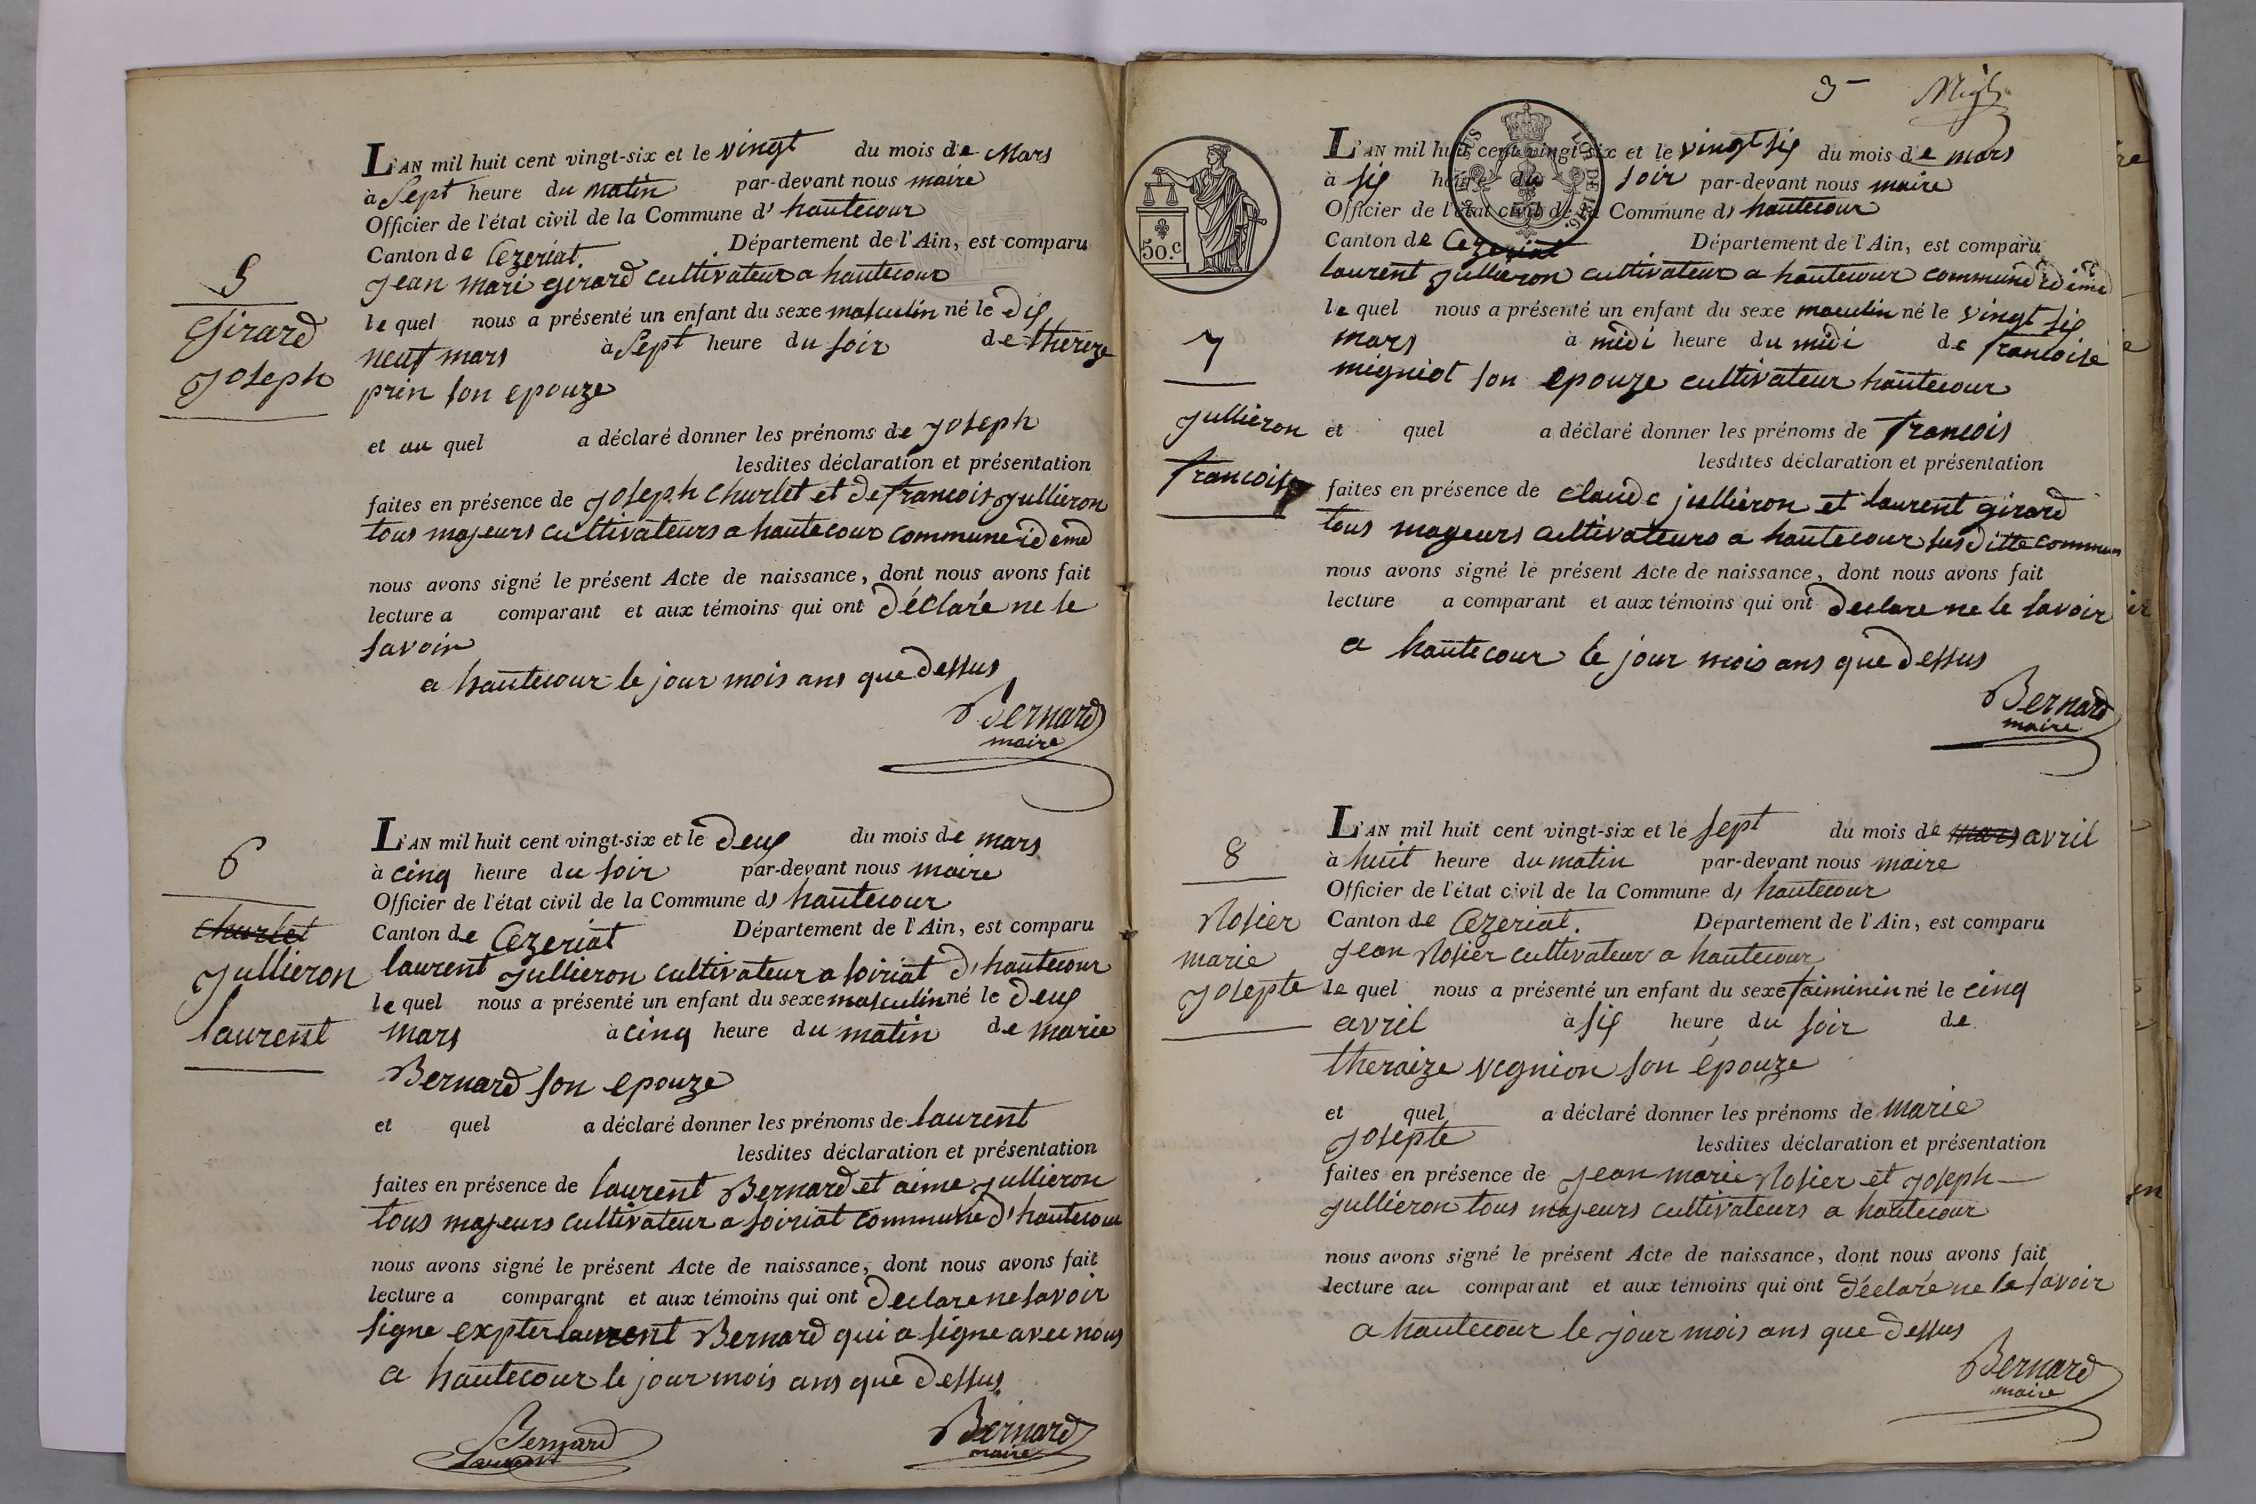 5
Girard
Joseph
L'AN mil huit cent vingt-six et le vingt du mois de Mars
à Sept heure du matin par-devant nous maire
Officier de l'état civil de la Commune d' hautecour
Canton de Cezeriat. Département de l'Ain, est comparu
Jean mari girard cultivateur a hautecour
le quel nous a présenté un enfant du sexe masculin né le dix
neuf mars à Sept heure du soir de thereze
prin son epouze
et au quel a déclaré donner les prénoms de Joseph
lesdites déclaration et présentation
faites en présence de Joseph Churlet et de francois Jullieron
tous majeurs cultivateurs a hautecour commune idême
nous avons signé le présent Acte de naissance, dont nous avons fait
lecture a comparant et aux témoins qui ont déclaré ne le
savoir
a hautecour le jour mois ans que dessus
Bernard
maire
6
churlet
Jullieron
laurent
L'AN mil huit cent vingt-six et le deux du mois de mars
à cinq heure du soir par-devant nous maire
Officier de l'état civil de la Commune d' hautecour
Canton de Cezeriat Département de l'Ain, est comparu
laurent Jullieron cultivateur a soiriat d'hautecour
le quel nous a présenté un enfant du sexe masculin né le deux
mars à cinq heure du matin de marie
Bernard son epouze
et quel a déclaré donner les prénoms de laurent
lesdites déclaration et présentation
faites en présence de laurent Bernard et aime Jullieron
tous majeurs cultivateur a soiriat commune d'hautecour
nous avons signé le présent Acte de naissance, dont nous avons fait
lecture a comparant et aux témoins qui ont declare ne savoir
signe expter laurent Bernard qui a signe avec nous
a hautecour le jour mois ans que dessus
Bernard
Laurent
Bernard
maire
3
50.c
7
Jullieron
francoise
L'AN mil huit cent vingt-six et le vingt six du mois de mars
à six heure du soir par-devant nous maire
Officier de l'état civil de la Commune d' hautecour
Canton de Cezeriat Département de l'Ain, est comparu
laurent Jullieron cultivateur a hautecour commune idême
le quel nous a présenté un enfant du sexe maculin né le vingt six
mars à midi heure du midi de francoise
migniot son epouze cultivateur hautecour
et quel a déclaré donner les prénoms de francois
lesdites déclaration et présentation
faites en présence de claude jullieron et laurent girard
tous mageurs cultivateurs a hautecour susditte commun
nous avons signé le présent Acte de naissance, dont nous avons fait
lecture a comparant et aux témoins qui ont declare ne le savoir
a hautecour le jour mois ans que dessus
Bernard
maire
8
Rosier
marie
Josepte
L'AN mil huit cent vingt-six et le sept du mois de mars avril
à huit heure du matin par-devant nous maire
Officier de l'état civil de la Commune d' hautecour
Canton de Cezeriat. Département de l'Ain, est comparu
Jean Rosier cultivateur a hautecour
le quel nous a présenté un enfant du sexe faiminin né le cinq
avril à six heure du soir de
theraize vegnion son épouze
et quel a déclaré donner les prénoms de marie
Josepte lesdites déclaration et présentation
faites en présence de Jean marie Rosier et Joseph
Jullieron tous majeurs cultivateurs a hautecour
nous avons signé le présent Acte de naissance, dont nous avons fait
lecture au comparant et aux témoins qui ont déclaré ne le savoir
a hautecour le jour mois ans que dessus
Bernard
maire